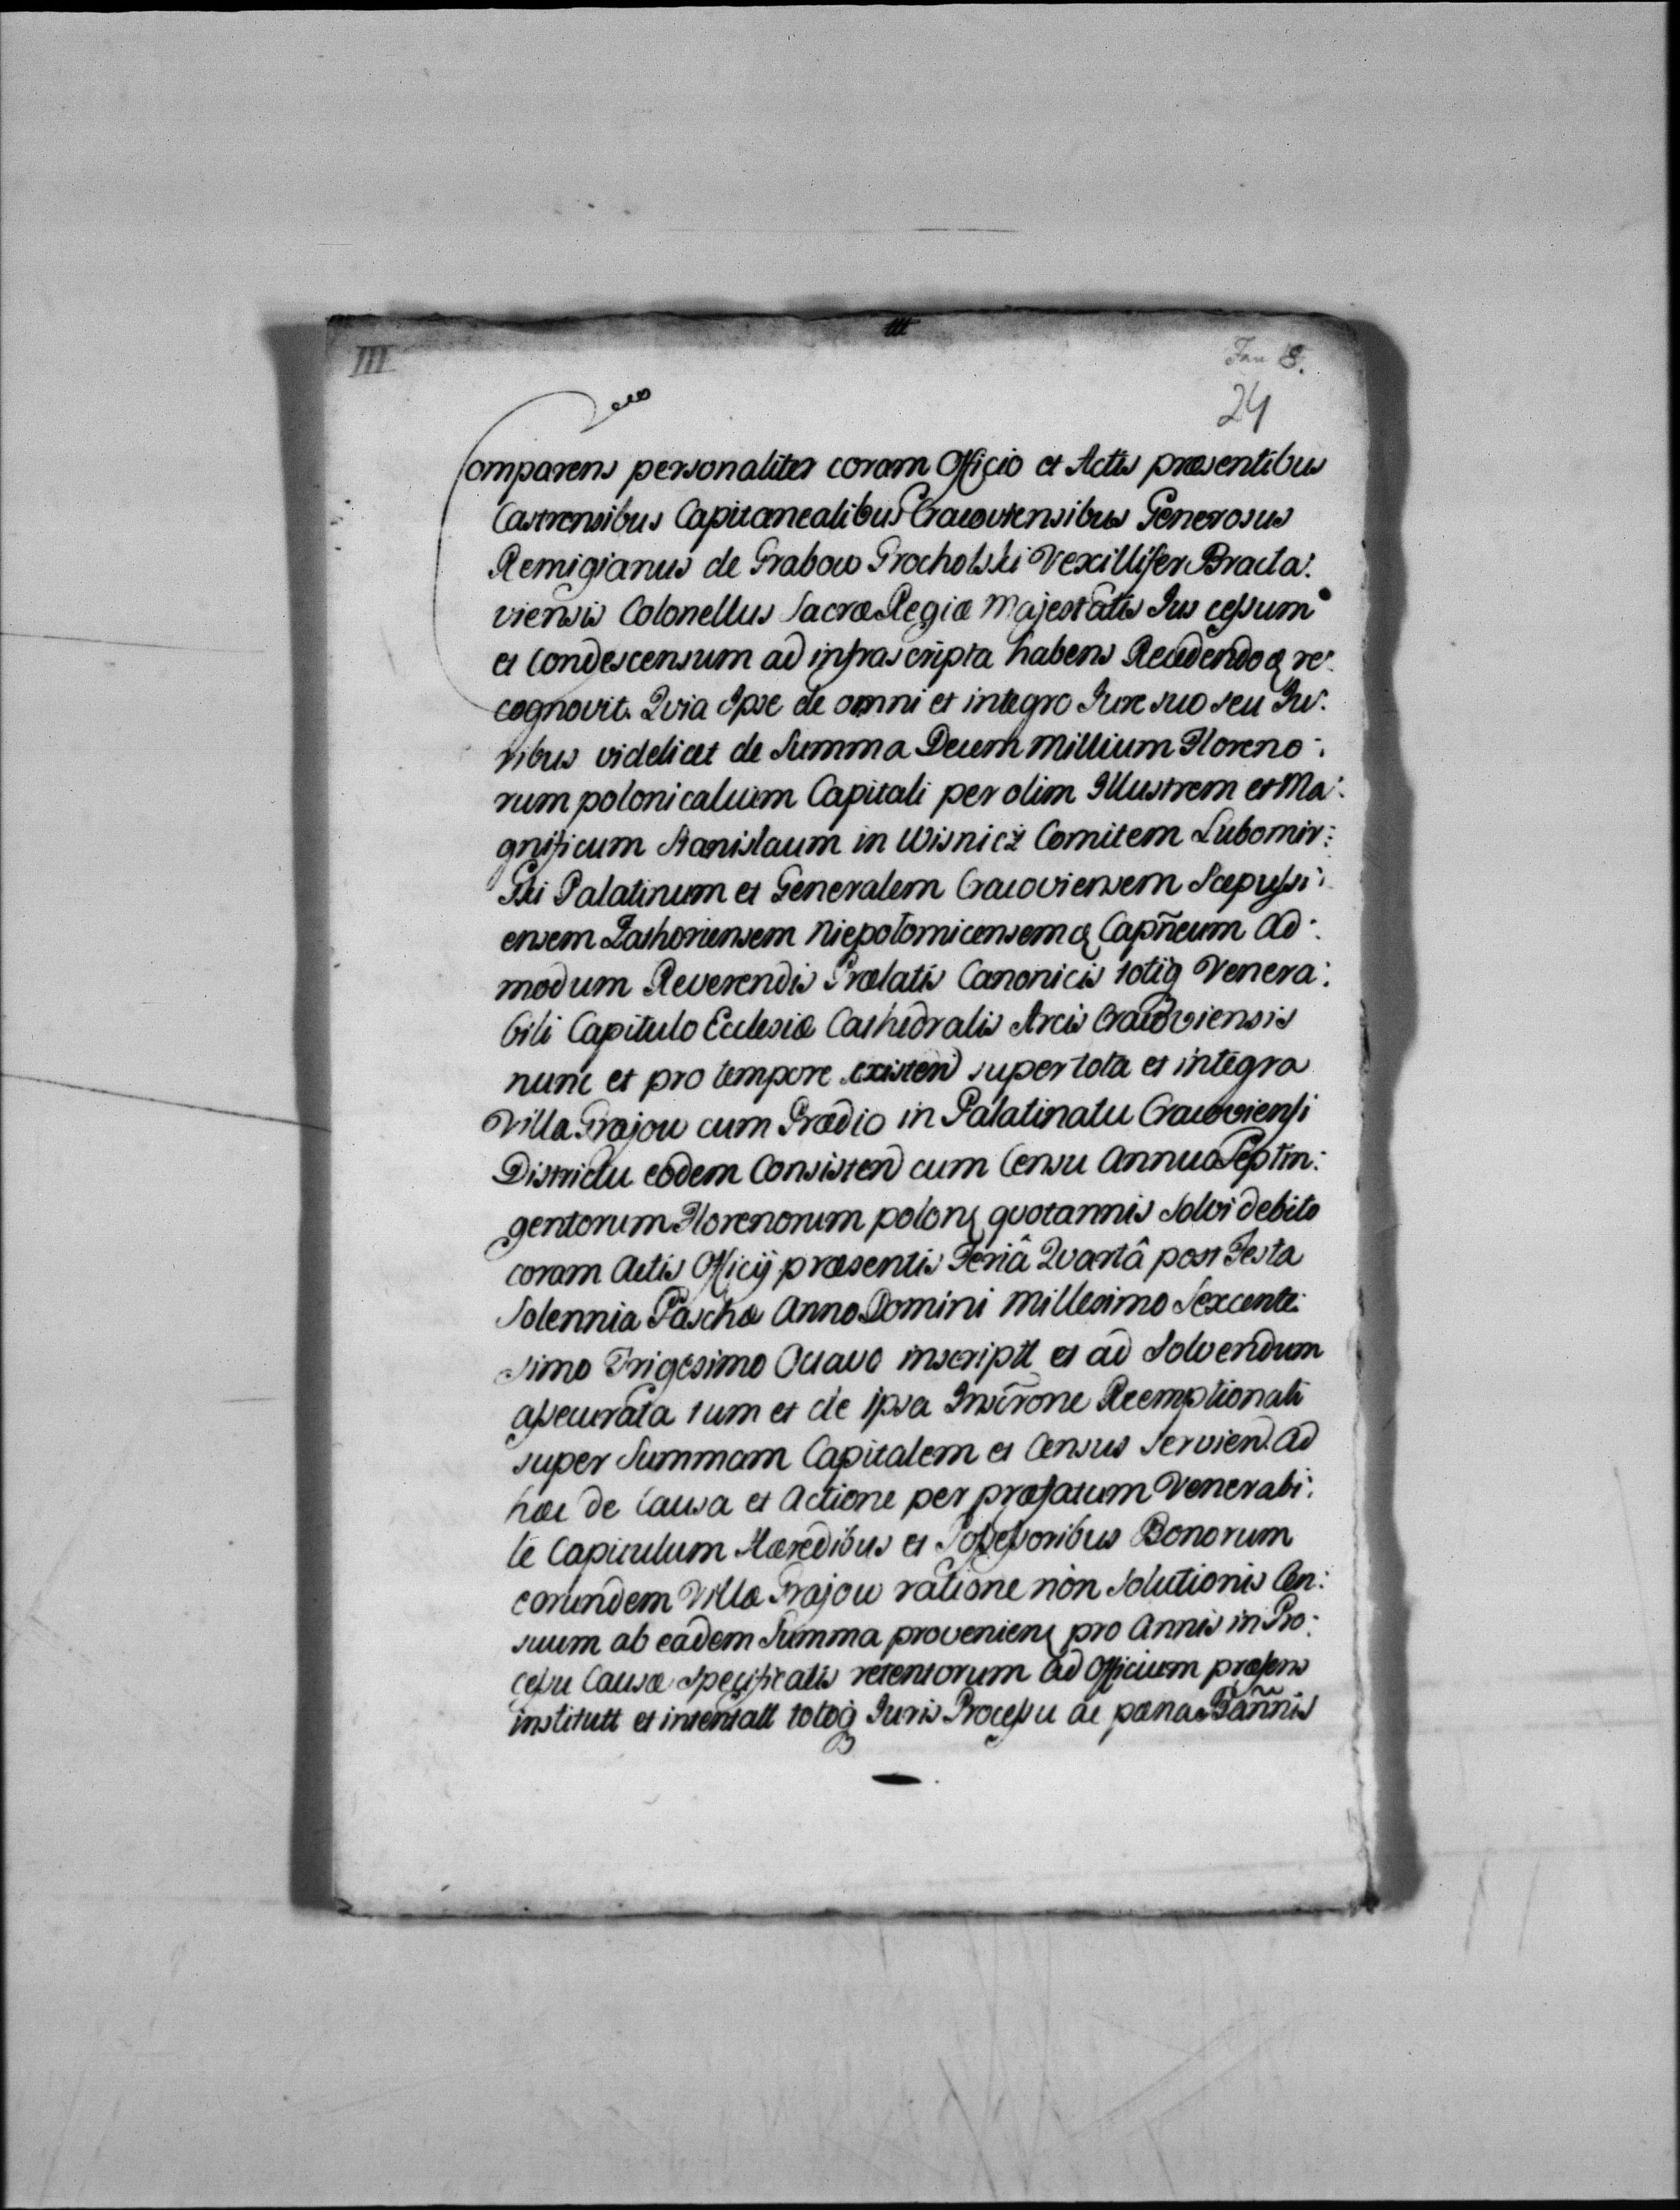 III
III
Fan 8.
24
Comparens personaliter coram Officio et Actis præsentibus
Castrensibus Capitanealibus Cracoviensibus Generosus
Remigianus de Grabow Grocholski Vexillifer Bracla:
viensis Colonellus Sacræ Regiæ Majestatis Jus cessum
et Condescensum ad infrascripta habens Recedendoq re:
cognovit. Quia Ipse de omni et integro Jure suo seu Ju:
ribus videlicet de Summa Decem Millium Floreno:
rum polonicalium Capitali per olim Illustrem et Ma:
gnificum Stanislaum in Wisnicz Comitem Lubomir:
ski Palatinum et Generalem Cracoviensem Scepussi:
ensem Zathoriensem Niepolomicensemq Capñeum Ad:
modum Reverendis Prælatis Canonicis totiq Venera:
bili Capitulo Ecclesiæ Cathedralis Arcis Cracoviensis
nunc et pro tempore existen super tota et integra
Villa Grajow cum Prædio in Palatinatu Cracoviensi
Districtu eodem Consisten cum Censu Annuo Septin:
gentorum Florenorum polon quotannis Solvi debito
coram Actis Officij præsentis Feriâ Quartâ post Festa
Solennia Paschæ Anno Domini Millesimo Sexcente:
simo Trigesimo Octavo inscriptt et ad Solvendum
assecurata tum et de ipsa Inscrone Reemptionali
super Summam Capitalem et Census Servien. Ad
hæc de Causa et Actione per præfatum Venerabi:
le Capitulum Hæredibus et Possessoribus Bonorum
eorundem Villæ Grajow ratione non Solutionis Cen:
suum ab eadem Summa provenien pro Annis in Pro:
cessu Causæ Specificatis retentorum Ad Officium præsens
institutt et intentatt totoq Juris Processu ac pœna Bañnis